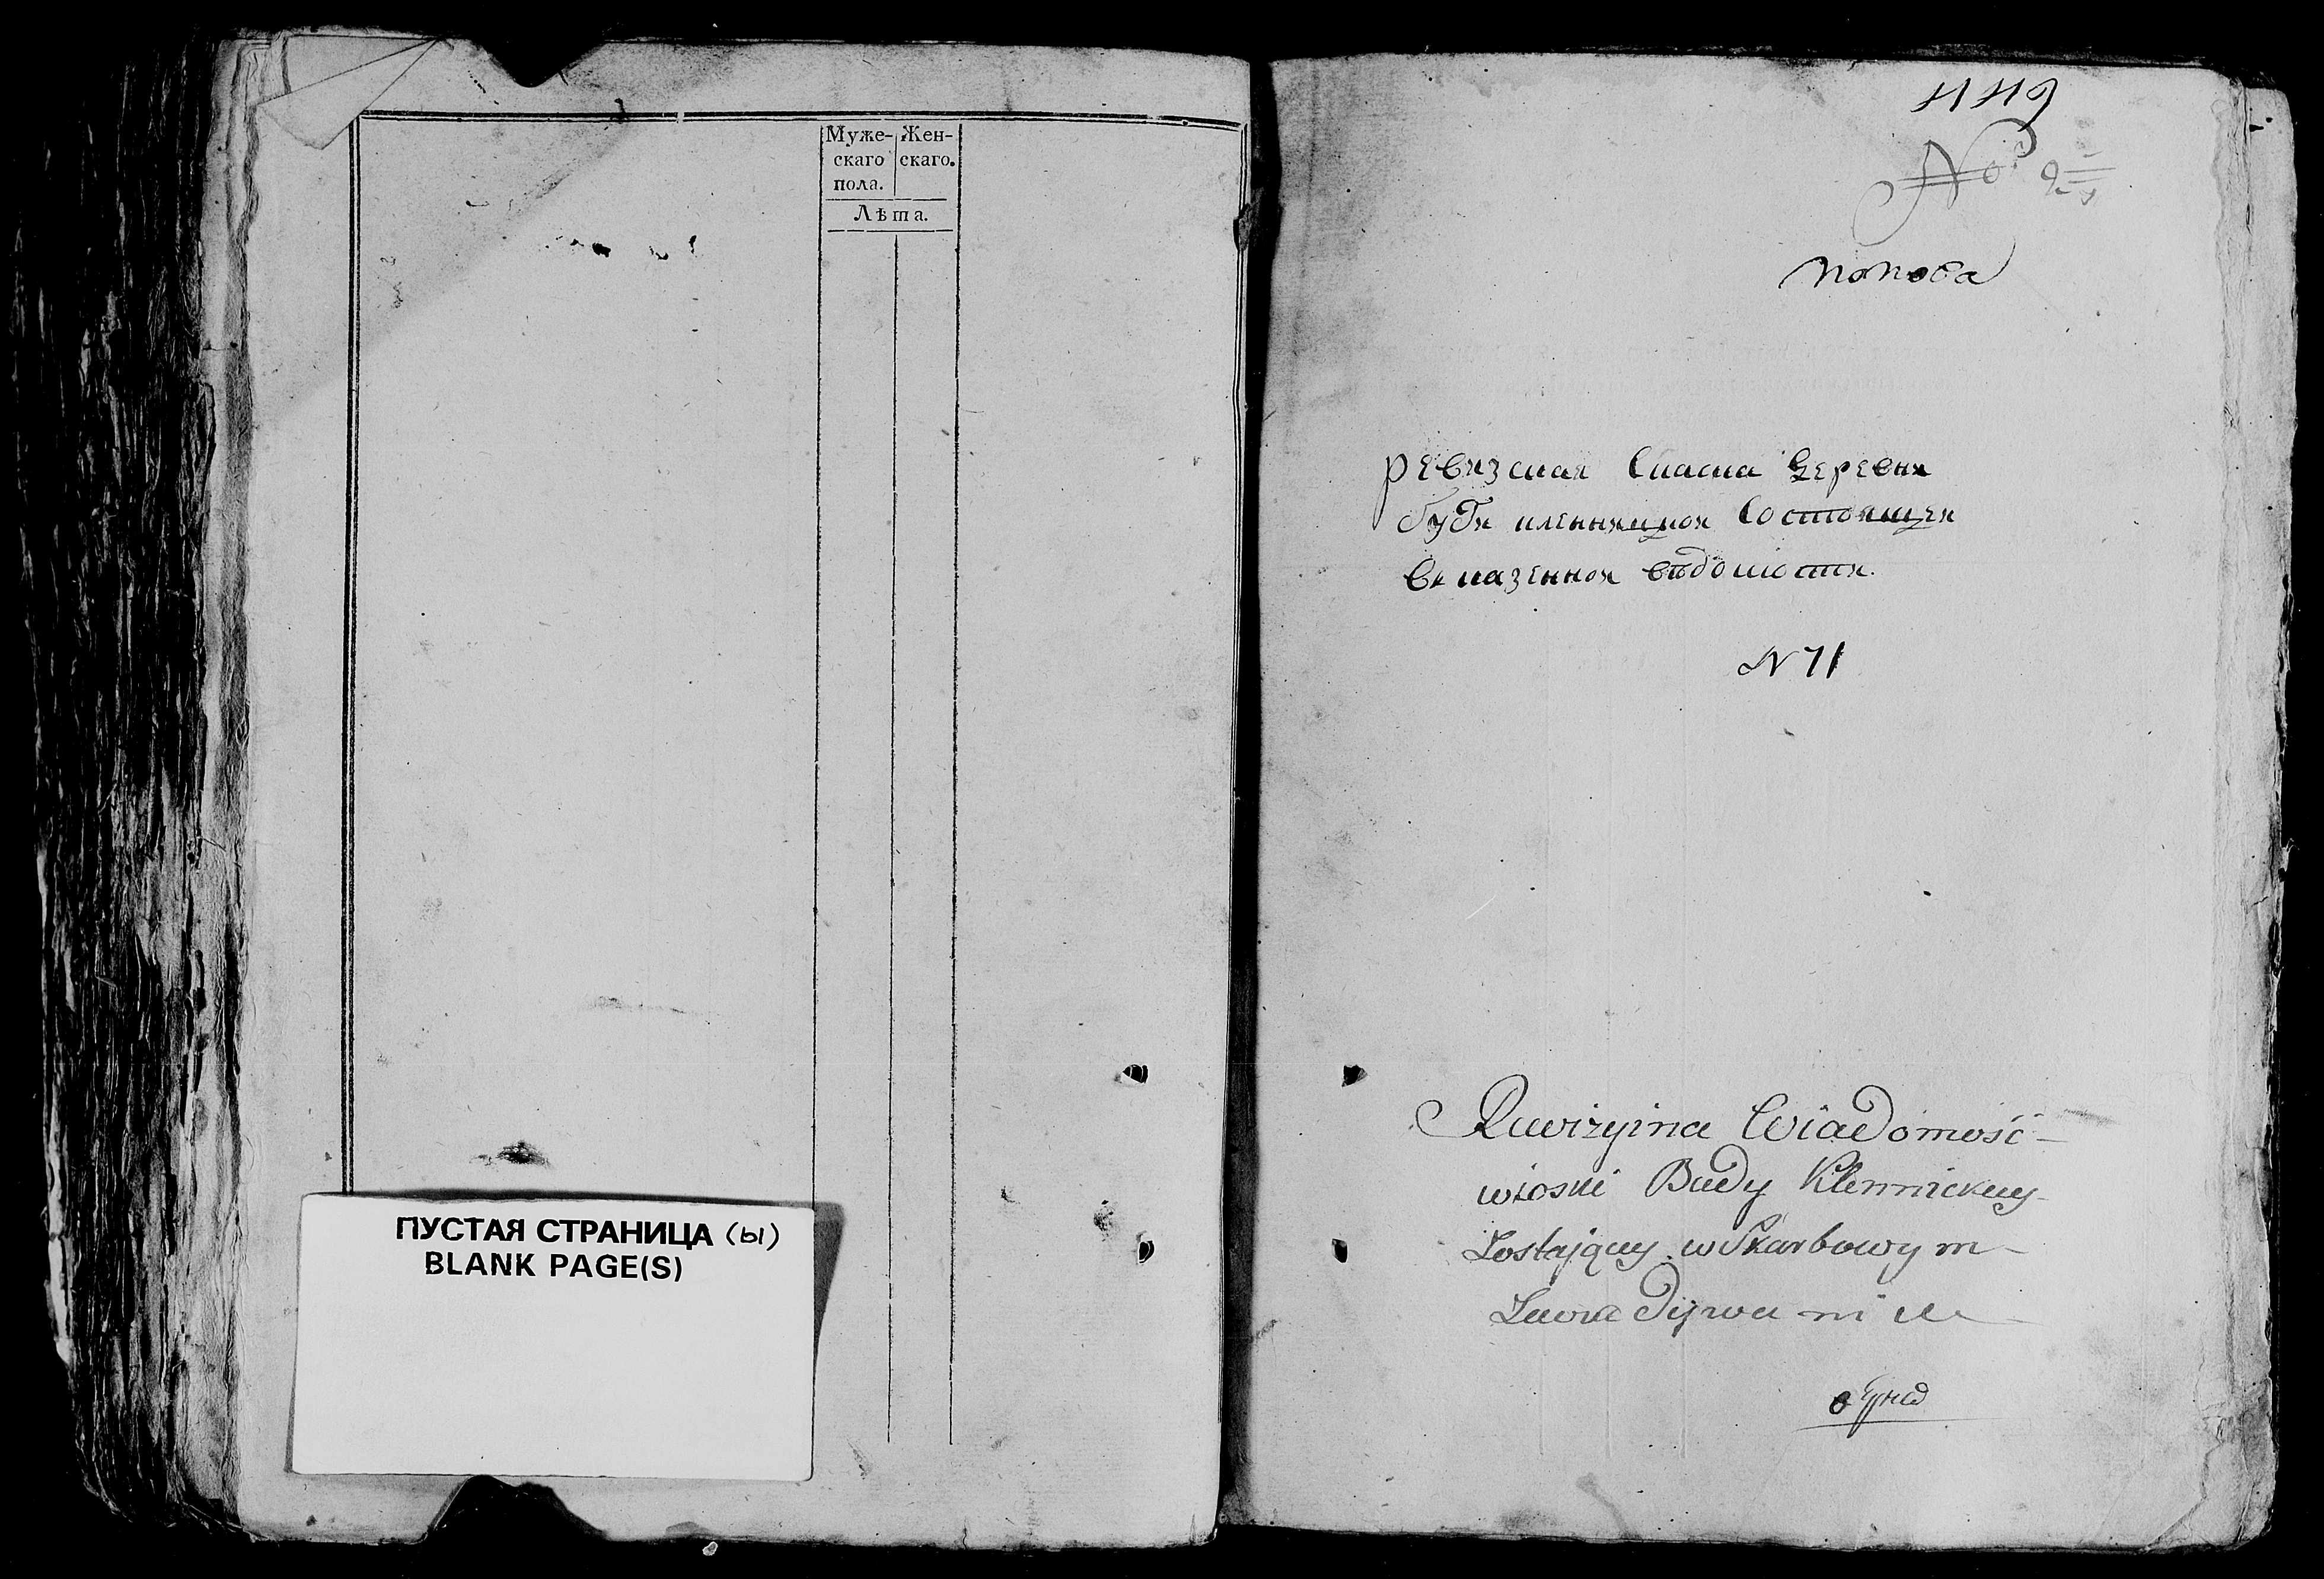 Муже- Жен-
скаго скаго.
пола.
Лѣта.
ПУСТАЯ СТРАНИЦА (ы)
BLANK PAGE(S)
449
No 9
попова
ревизская скаска деревни
буды кленницкой состоящей
в казенной видомости.
N 71
Rewizyina Wiadomość
wioski Budy Klennickiey
Zostaiącey w Skarbowym
Zawiadywaniu